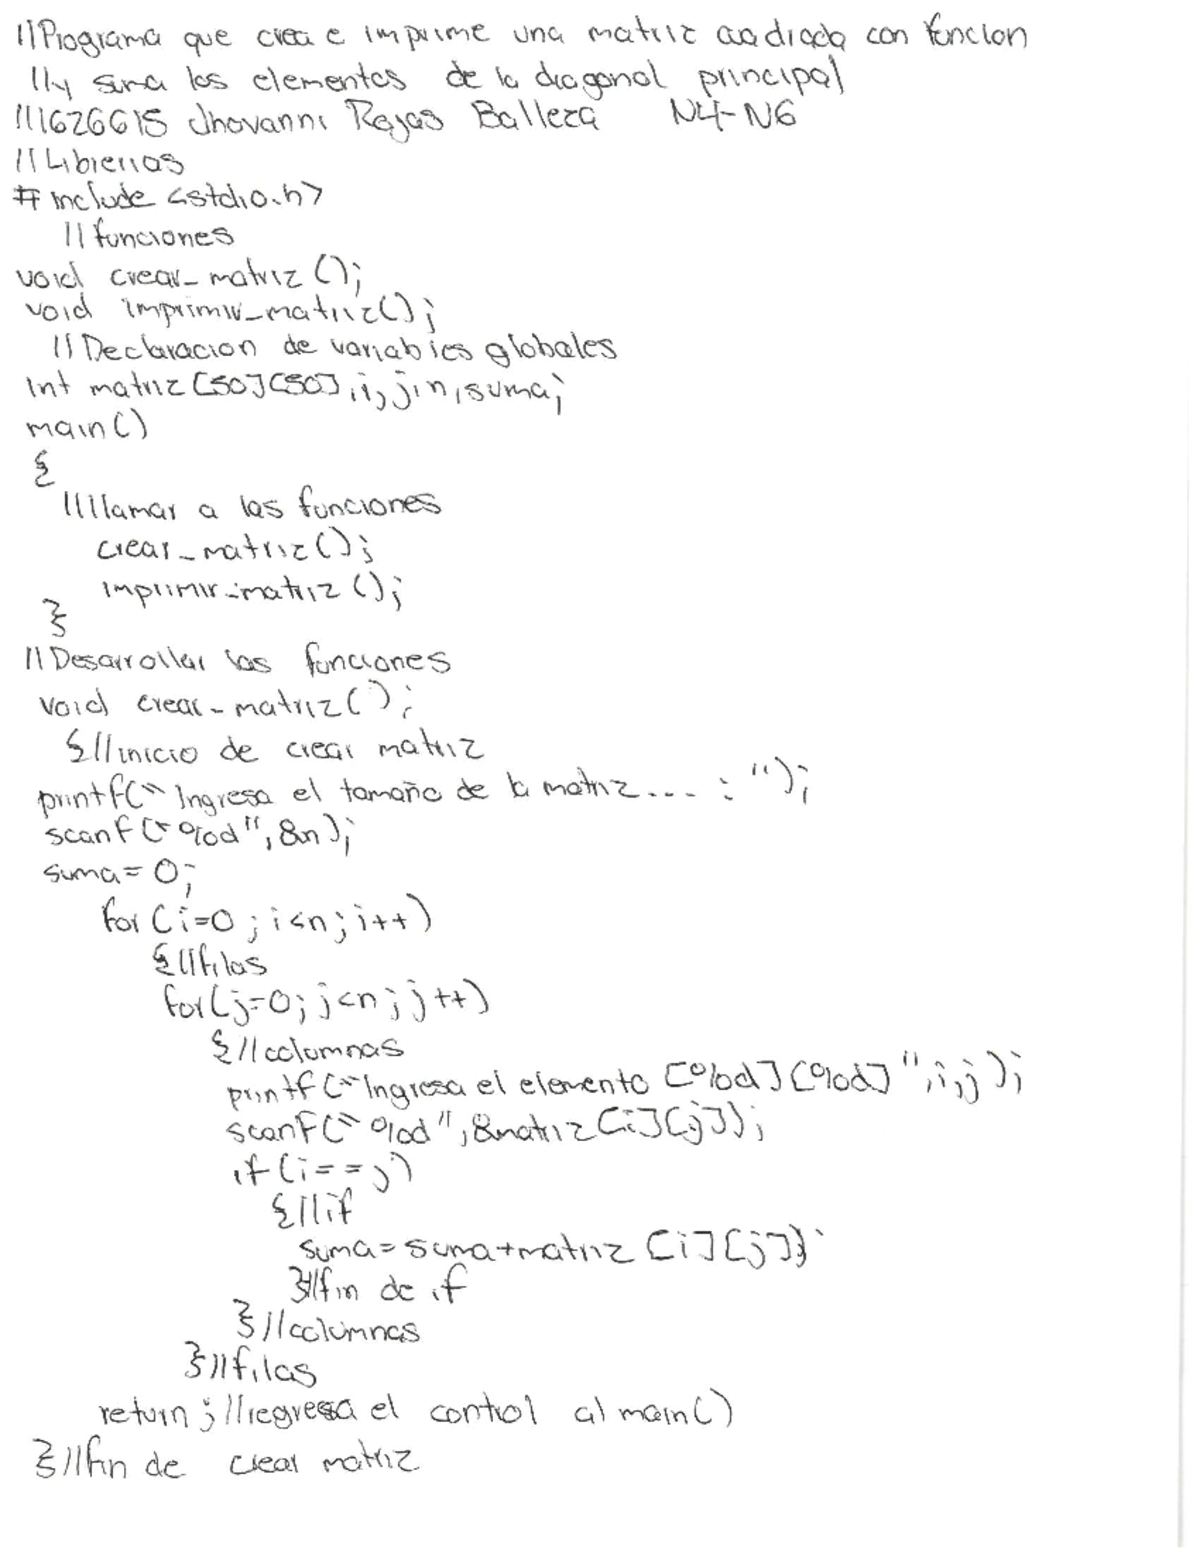 //Programa que crea e imprime una matriz cuadrada con funcion
//y suma los elementos de la diagonal principal
//1626615 Jhovanni Rojas Balleza N4-N6
//Librerias
#include <stdio.h>
//funciones
void crear_matriz();
void imprimir_matriz();
//Declaracion de variables globales
int matriz[50][50],i,j,n,suma;
main()
{
//llamar a las funciones
crear_matriz();
imprimir_matriz();
}
//Desarrollar las funciones
void crear_matriz();
{//inicio de crear matriz
printf("Ingresa el tamaño de la matriz... : ");
scanf("%d",&n);
suma=0;
for(i=0;i<n;i++)
{//filas
for(j=0;j<n;j++)
{//columnas
printf("Ingresa el elemento [%d][%d]",i,j);
scanf("%d",&matriz[i][j]);
if(i==j)
{//if
suma=suma+matriz[i][j];
}//fin de if
}//columnas
}//filas
return;//regresa el control al main()
}//fin de crear matriz